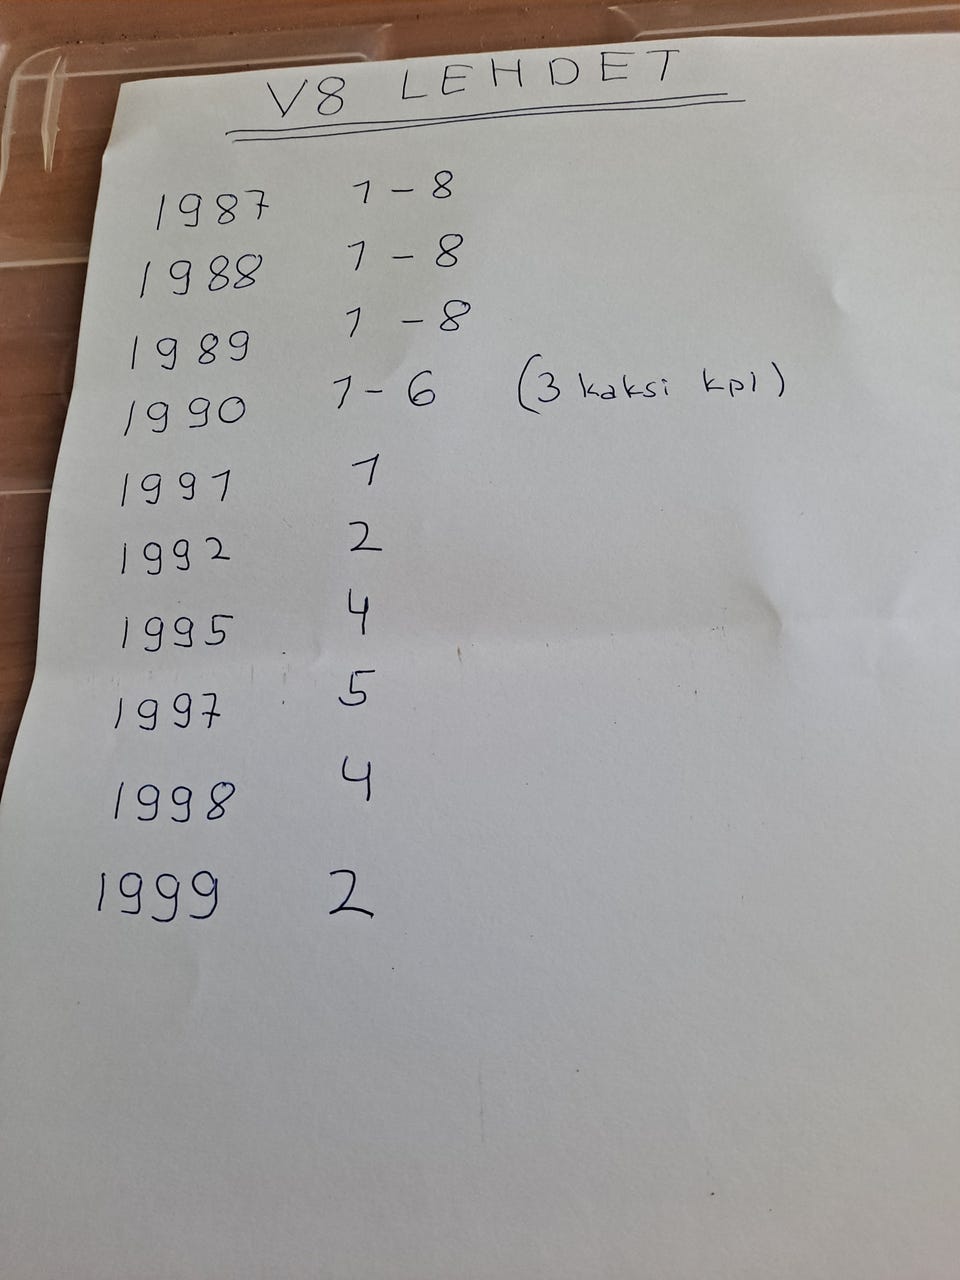 V8 LEHDET
1987 1-8
1988 1-8
1989 1-8
1990 1-6 (3 kaksi kpl)
1991 1
1992 2
1995 4
1997 5
1998 4
1999 2